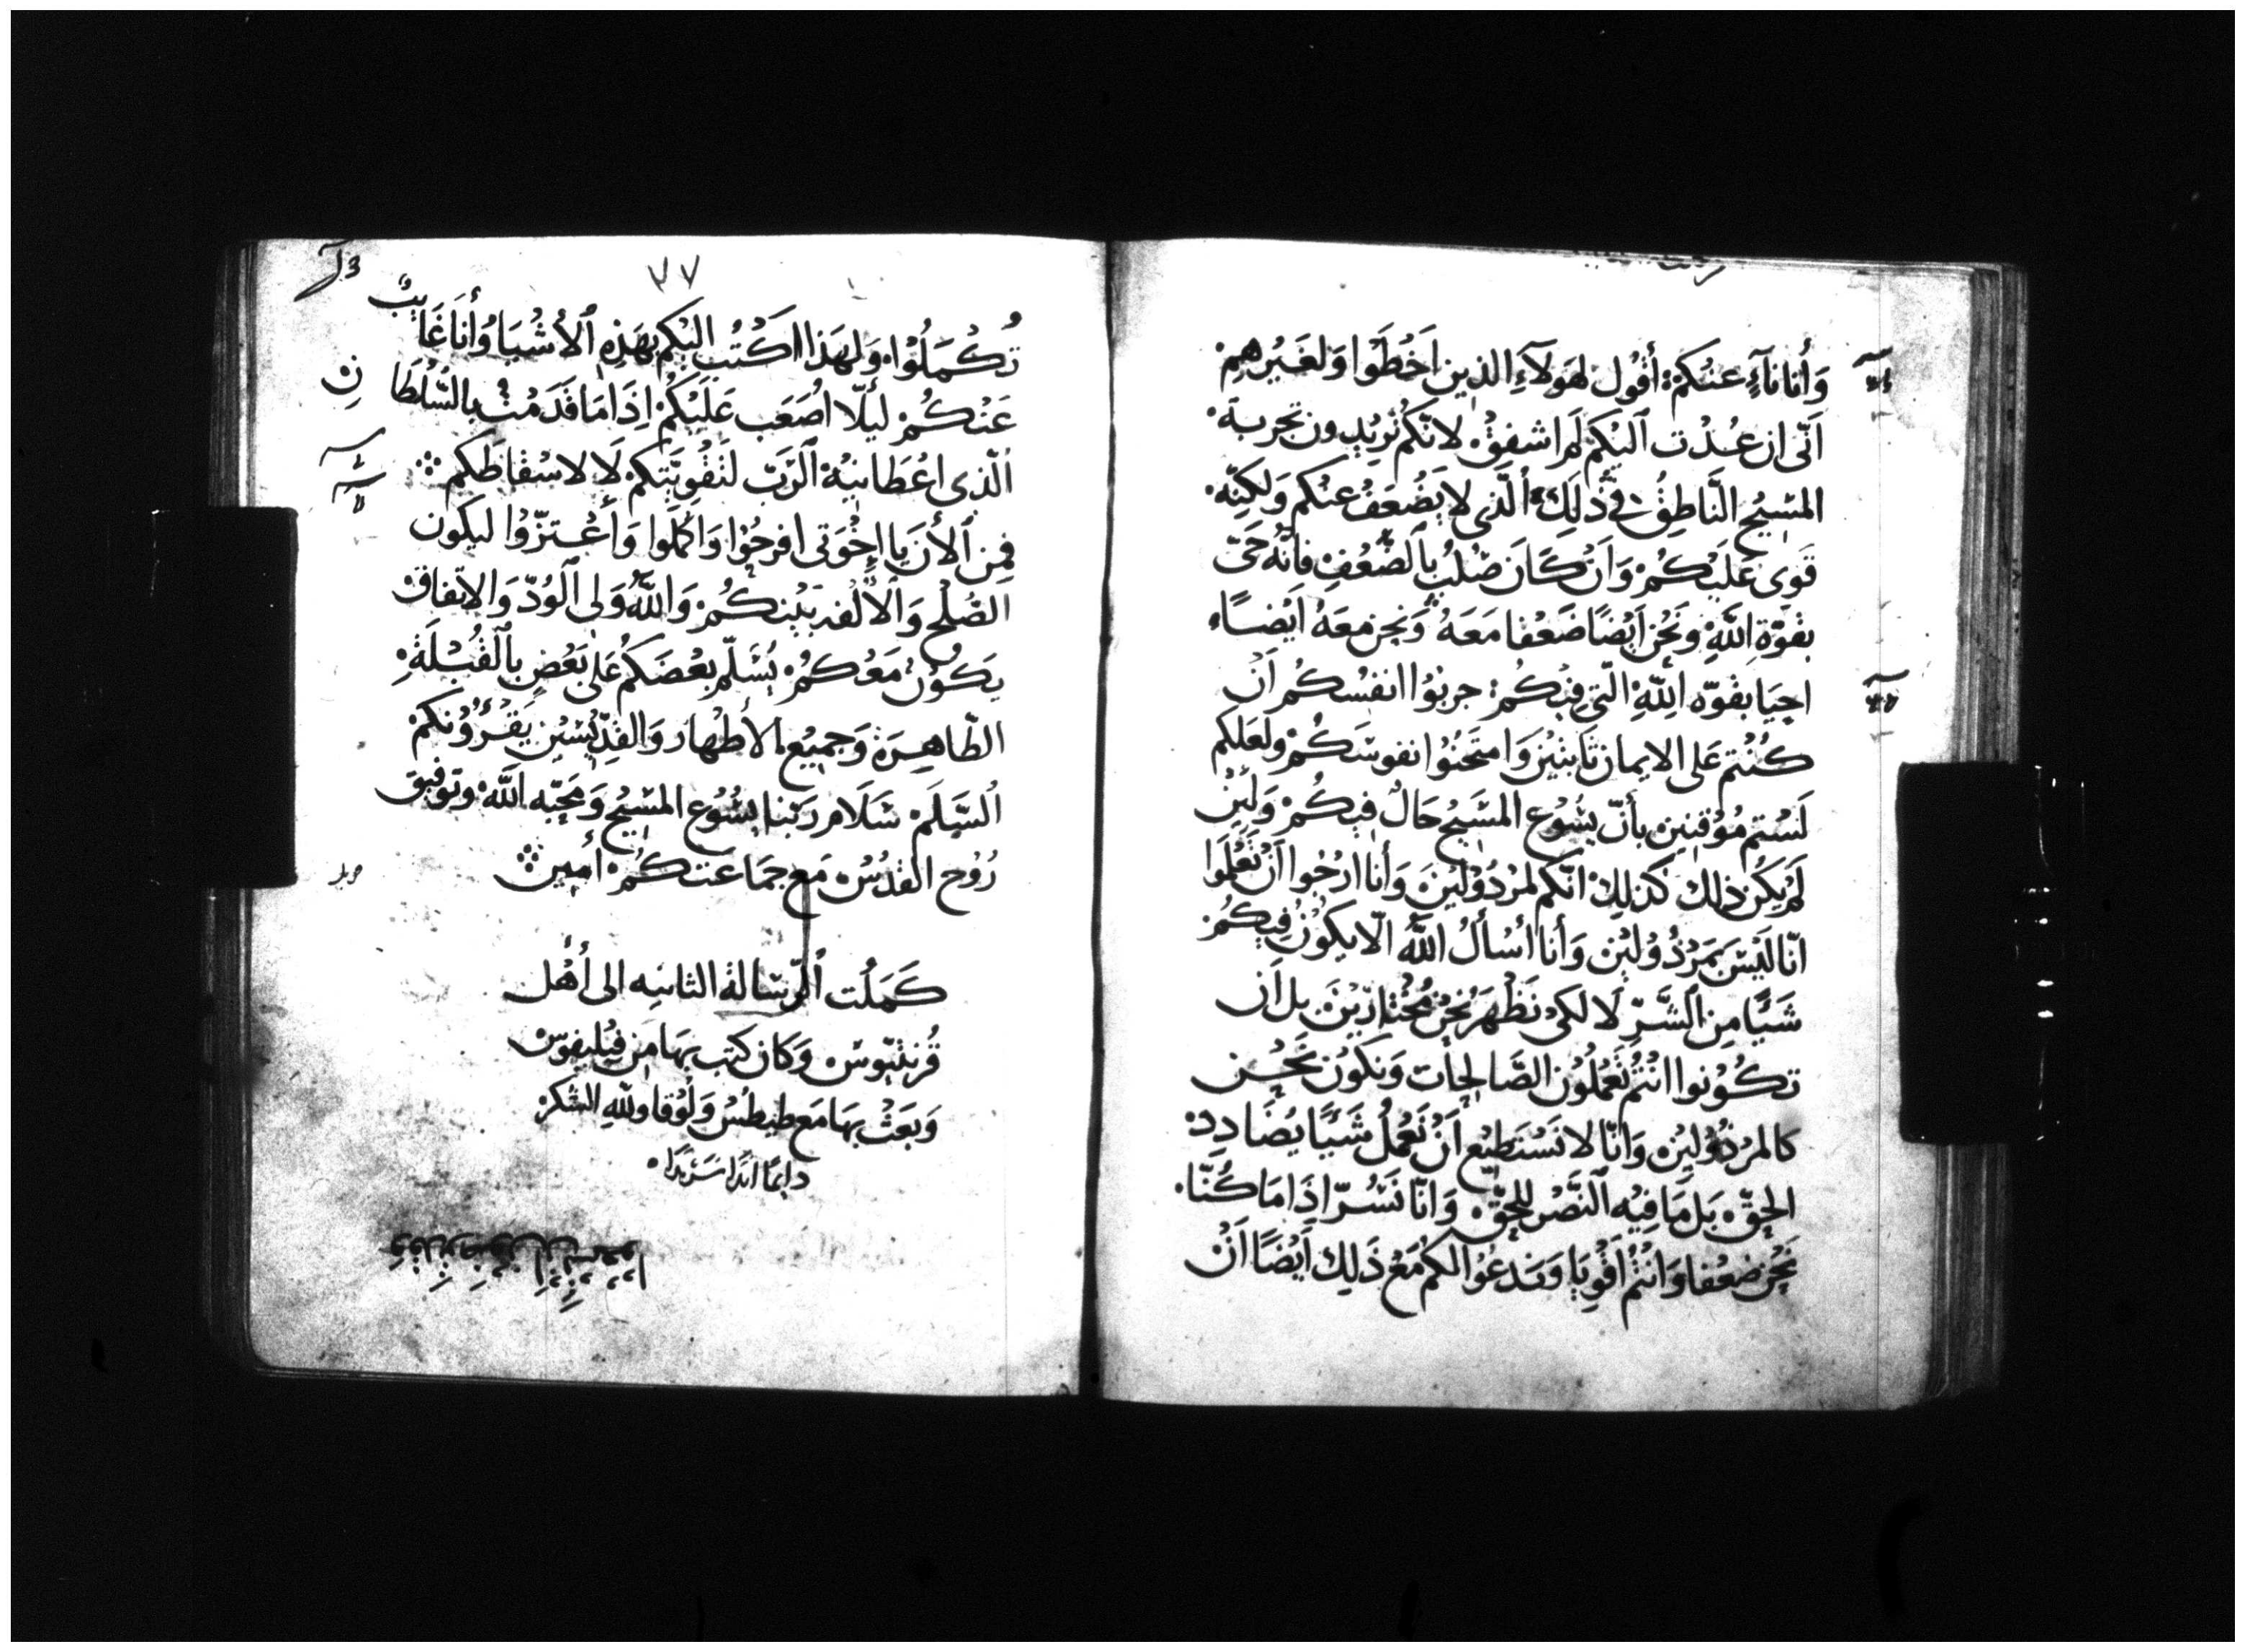 وَأَنا نَآءٍ عَنْكُمْ أَقُول لهَولآءِ الذين اَخْطَوا وَلغَيْرهِمْ
اَنّى ان عُدْت اَليْكم لَم اشفقْ لانّكم تُريْدون تجربة
المسِيْح النَّاطِقُ فىَّ ذَلِكَ الَّذى لا يَضْعَفُ عنكم وَلكِنّه
قَوى عَليْكُمْ وَاَنْ كَانَ صُلبُ بِالضُّعْفِ فانّه حَىّ
بقوّة اللَّهِ وَنَحْن اَيْضًا ضُعَفا مَعَهُ وَنحن مَعَهُ اَيْضًا
احيَا بقوّه اللَّهِ الّتى فيْكُمْ جربُوا انفسْكُم اَنْ
كُنْتم عَلى الايمان ثَابتيْنَ وَامتَحنُوا نفوسَكُمْ ولعَلكم
لَسْتم مُوْقنين بأنّ يسُوْع المسَيْح حَالٌ فيكُمْ وَلئِنْ
لَم يكُن ذلك كذلِكْ انّكم لمرْدُوْليْنَ وَأنا ارْجُوا اَنْ تَعْلَموا
انّا ليْسَ بمَرْدُوْليْن وَأنا أسْألُ اللَّه الّا يكوْنْ فِيكُمْ
شَيْئًا مِن الشَّرّ لَا لكىْ نَظْهَرَ نحْن مُخْتارِيْنَ بل ان
تكُوْنوا انْتُمْ تَعْمَلُوْن الصَّالحَات وَنكوُن نَحْن
كالمرْدُوْليْن وَانّا لا نَسْتَطيْع اَنْ نَعْمَلُ شَيْئًا يُضَادِد
الحقّ بَل مَا فِيْه النَّصْر للحَقّ وَانّا نَسُرّ اذَا مَا كُنَّا
نَحْن ضعَفا وَانْتُمْ اَقْوِيَا وَنَدعُوْا لكمْ مَعْ ذَلِك اَيْضًا اَنْ
٧٧
تُكْمَلُوْا وَلهَذا اَكْتُب اليْكم بهَذِه الاشْيَا وَأنَا غَايبٌ
عَنْكُمْ ليئلّا اصْعَب عَلَيْكُمْ اِذَا مَا قَدَمْت بالسُّلطَانِ
الّذى اعْطَانيْهْ الرَّبّ لتَقْويَتِكمْ لَا لاسْقاطَكم
فمِن الأنَ يا إخْوَتى افرحُوْا وَاكْمَلوا وَأعْتزّوْا ليكون
الصُّلْح وَالألْفه بَيْنكُمْ وَاللَّهُ وَلى الوُدّ وَالاتّفاق
يَكوُنْ مَعْكُمْ يُسَلّم بعْضكُمْ عَلى بَعْضٍ بالقُبْلَةِ
الطّاهِرَة وَجميْع الأطْهار وَالقدّيْسيْن يَقْرُؤُوْنكمْ
السَّلَمْ سَلَام رَبّنا يسُوْع المسيْح وَمَحبّه اللَّه وتوْفيق
رُوْح القدُسْ مَع جمَاعَتكُمْ أميْن
كَمَلُت الرّسَالة الثانيه الى أهْل
قُرنثيّوسْ وَكان كتب بهَا من فيْليفوسْ
وَبَعَثْ بهَا مَع طيطُسْ وَلوْقا وللّهِ الشكرْ
دايمًا ابَدًا سَرْمَدًا